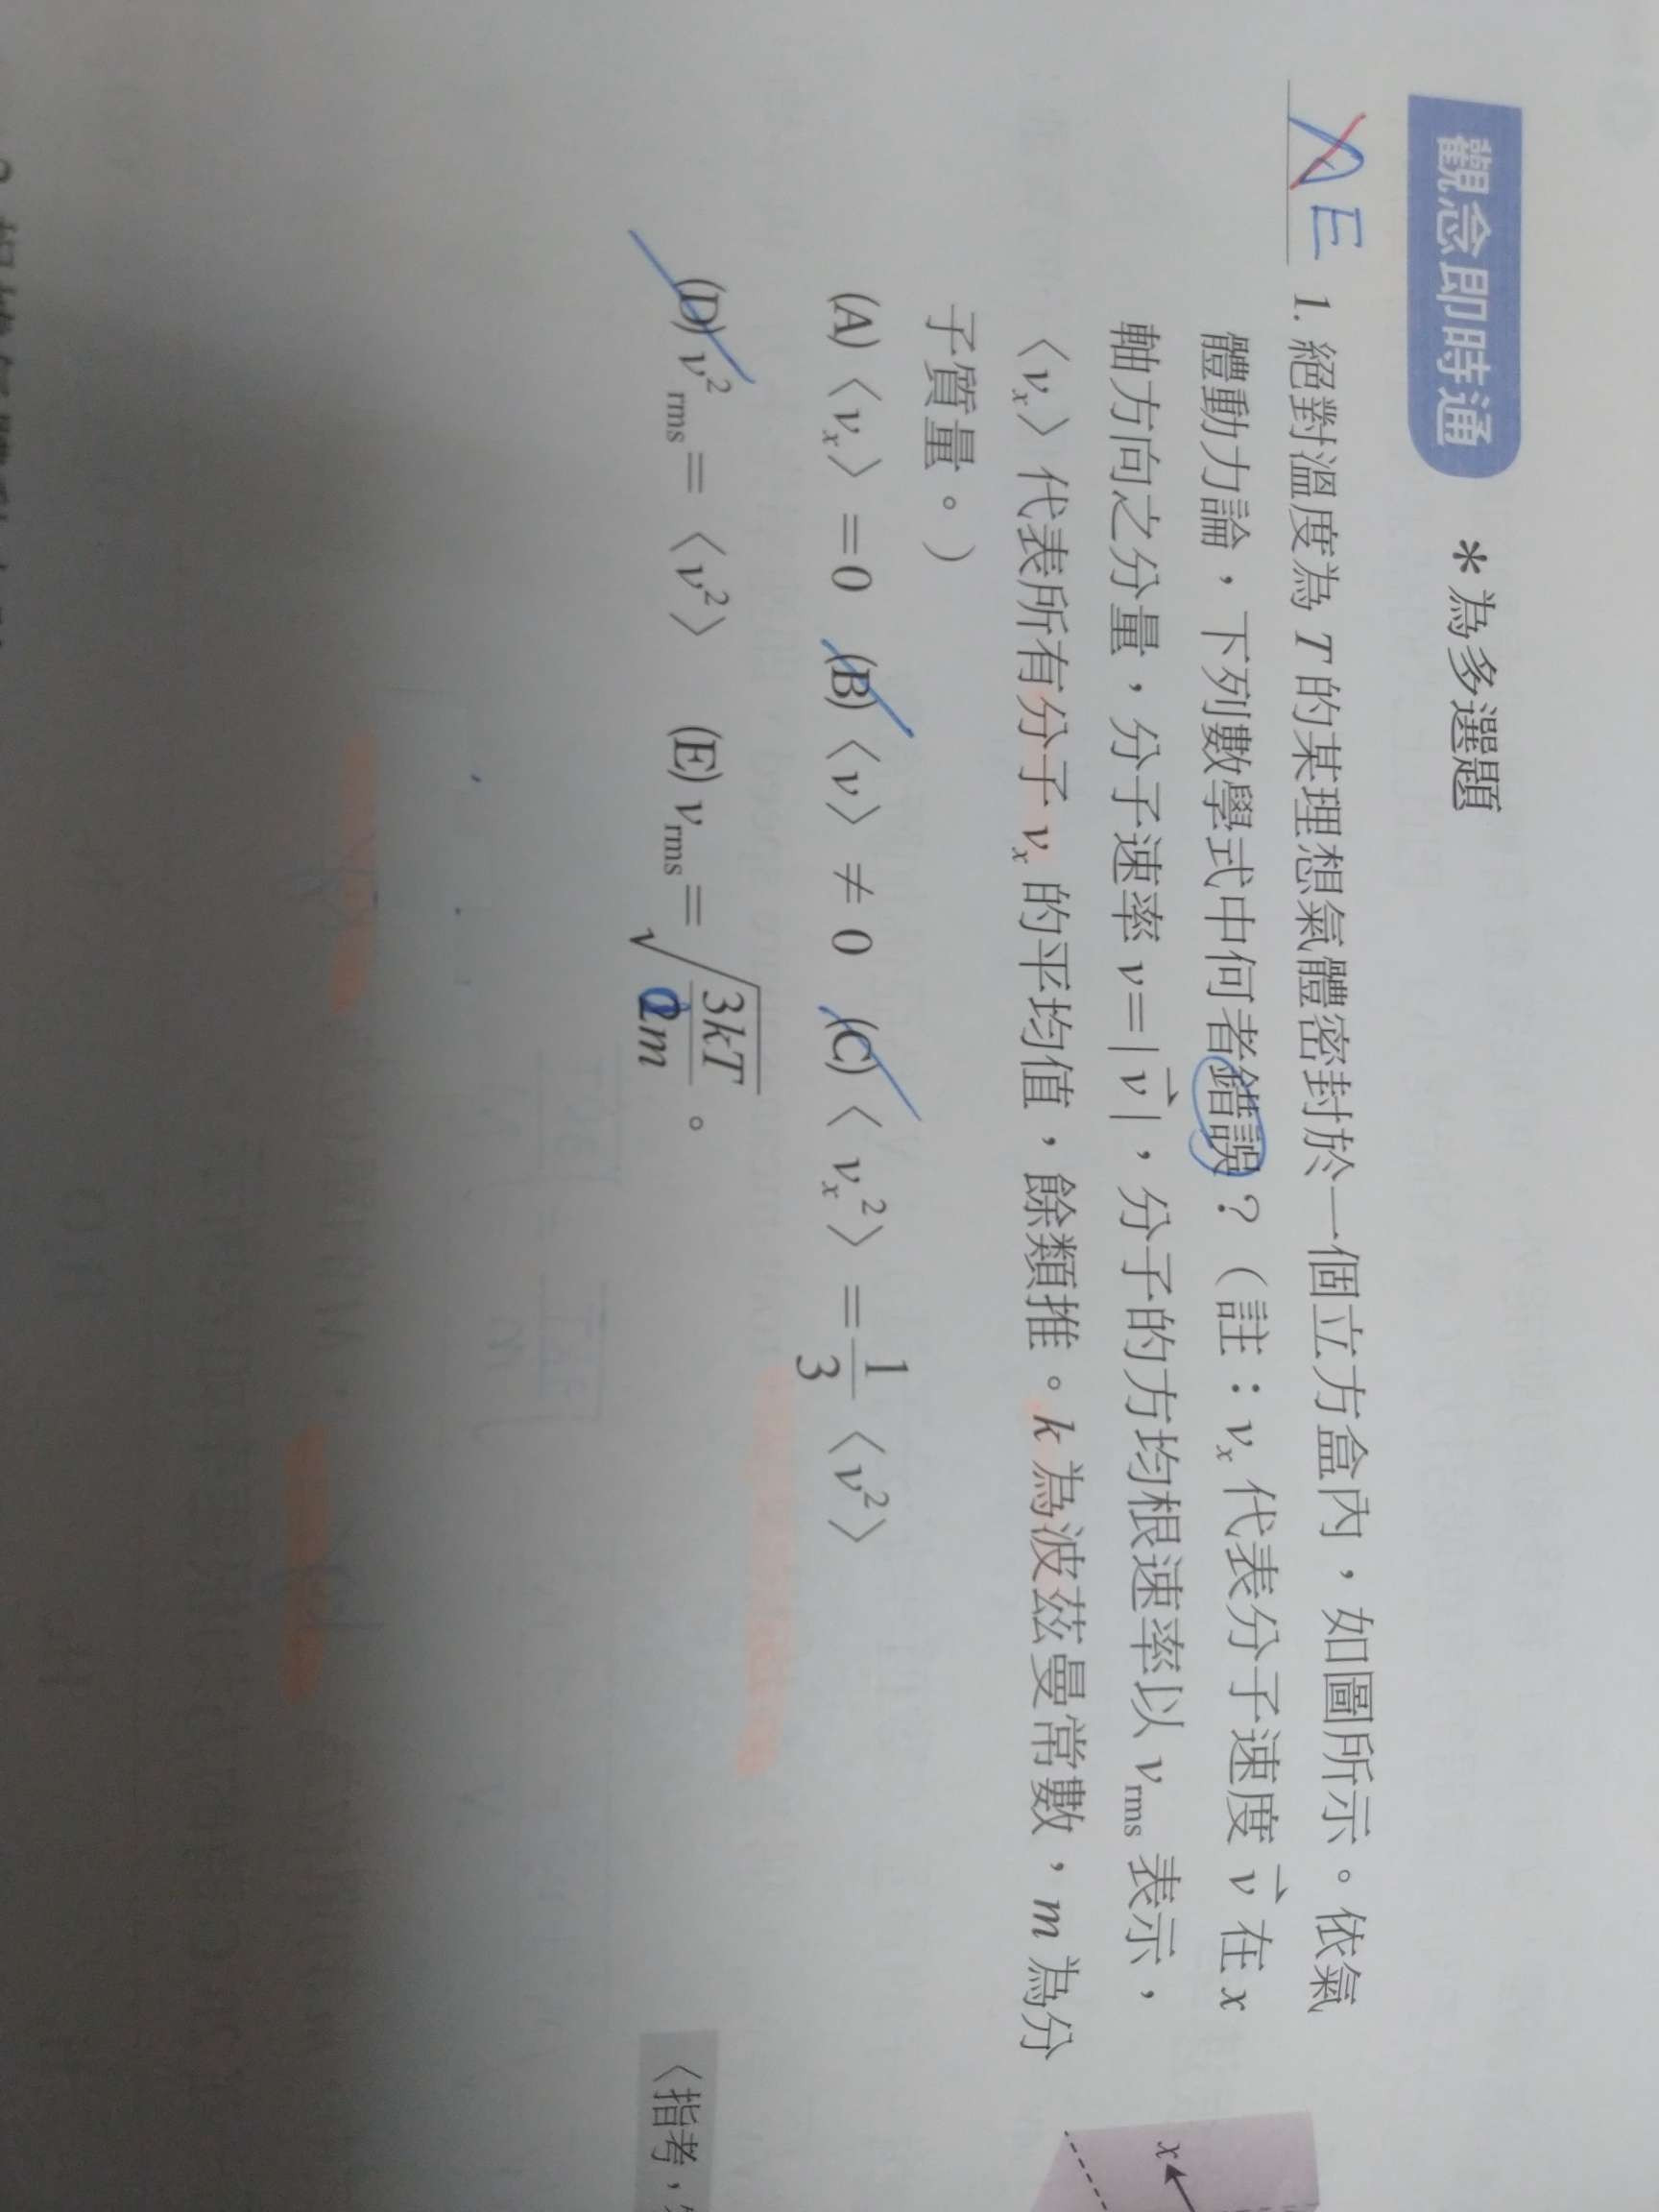 觀念即時通 *為多選題
AE 1. 絕對溫度為 T 的某理想氣體密封於一個立方盒內，如圖所示。依氣
體動力論，下列數學式中何者錯誤？（註：vₓ 代表分子速度 v⃗ 在 x
軸方向之分量，分子速率 v=|v⃗|，分子的方均根速率以 v_rms 表示，
〈vₓ〉代表所有分子 vₓ 的平均值，餘類推。k 為波茲曼常數，m 為分
子質量。）
(A)〈vₓ〉=0 (B)〈v〉≠0 (C)〈vₓ²〉=1/3〈v²〉
(D) v²_rms=〈v²〉 (E) v_rms=√(3kT/2m)。
〈指考，
x